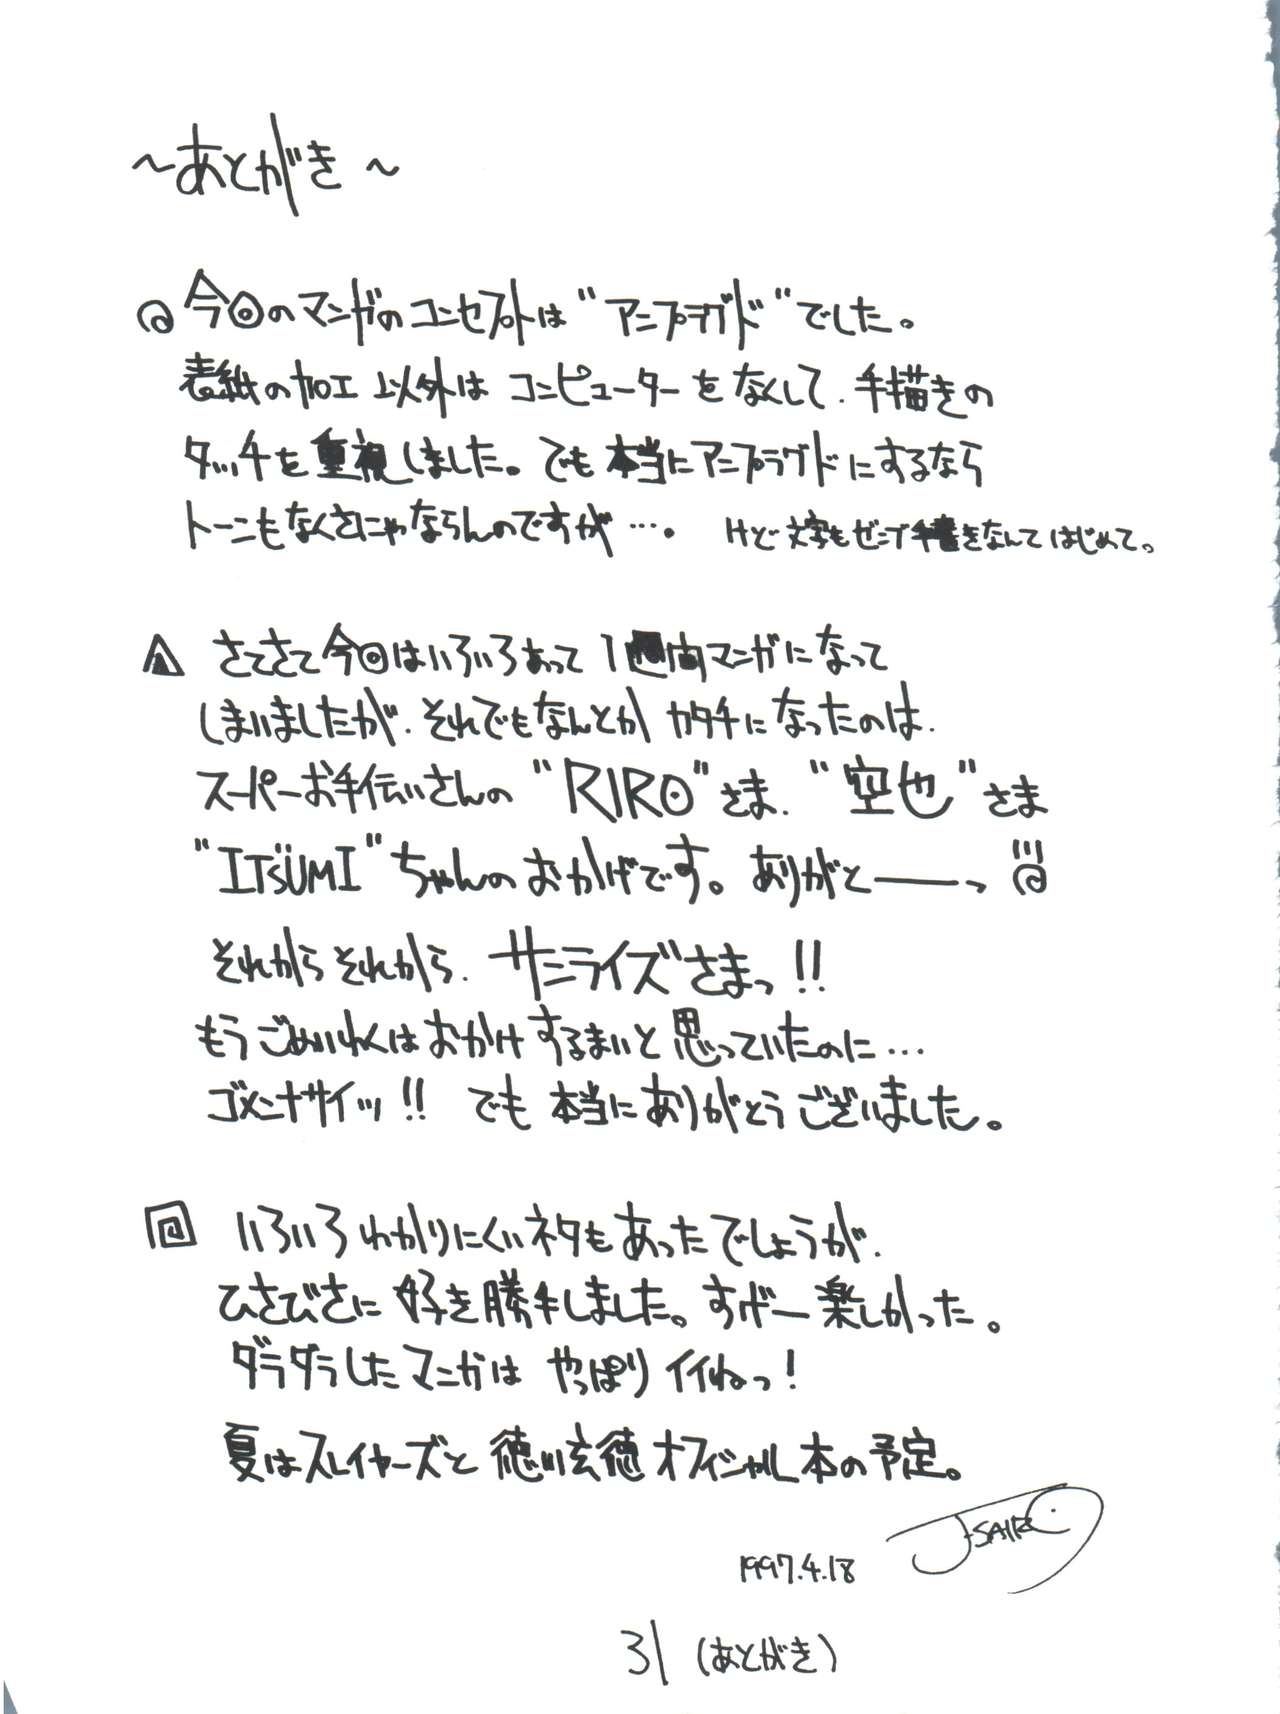 ～あとがき～
今回のマンガのコンセプトは"アンプラグド"でした。
表紙の加工以外はコンピューターをなくして、手描きの
タッチを重視しました。でも本当にアンプラグドにするなら
トーンもなくさにゃならんのですが…。 けど文字もゼンブ手書きなんてはじめて。
さてさて今回はいろいろあって1週間マンガになって
しまいましたが、それでもなんとかカタチになったのは、
スーパーお手伝いさんの"RIRO"さま、"空也"さま
"ITSUMI"ちゃんのおかげです。ありがとーーっ!!!
それからそれから、サンライズさまっ!!
もうごめいわくはおかけするまいと思っていたのに…
ゴメンナサイッッ!! でも本当にありがとうございました。
いろいろわかりにくいネタもあったでしょうが、
ひさびさに好き勝手しました。すげー楽しかった。
ダラダラしたマンガはやっぱりイイねっ!
夏はスレイヤーズと徳川玄徳オフィシャル本の予定。
1997.4.18
31 (あとがき)